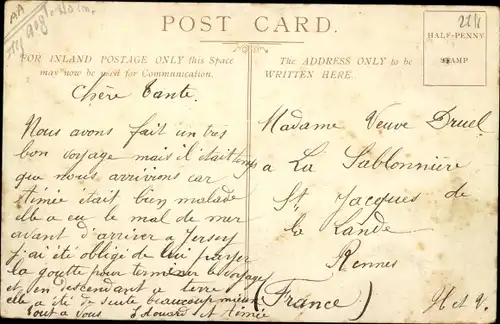 POST CARD.
FOR INLAND POSTAGE ONLY this Space
may now be used for Communication.
The ADDRESS ONLY to be
WRITTEN HERE.
HALF-PENNY
STAMP
Chère Tante.
Nous avons fait un très
bon voyage mais il était temps
que nous arrivions car
Aimée était bien malade
elle a eu le mal de mer
avant d'arriver a Jersey
j'ai été obligé de lui payer
la goutte pour terminer le voyage
et en descendant a terre
elle a été de suite beaucoup mieux
Tout a vous Edouard et Aimée
Madame Veuve Druel
a La Sablonnière
St Jacques de
la Lande
Rennes
(France)